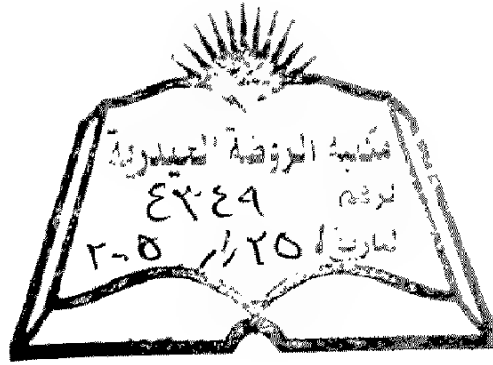 مكتبة الروضة الحيدرية
الرقم ٤٣٤٩
التاريخ ٢٥ / ١ / ٢٠٠٥